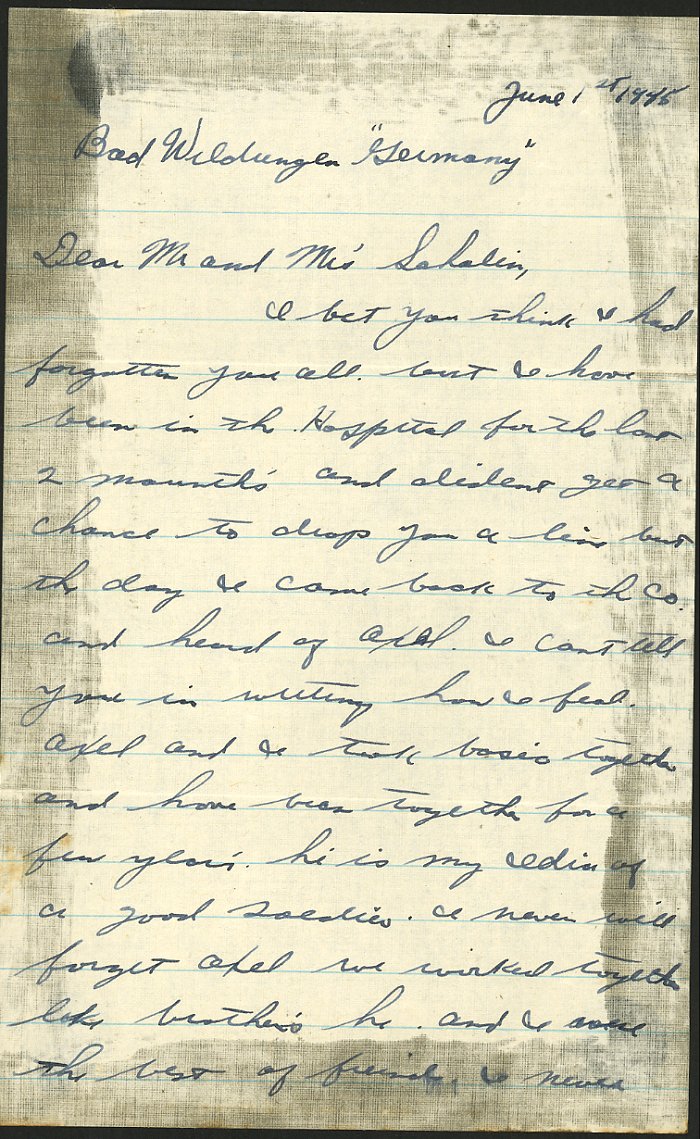 June 1st 1945
Bad Wildungen "Germany"
Dear Mr and Mrs Sahalin,
I bet you think I had
forgotten you all. but I have
been in the Hospital for the last
2 mounth's and dident get a
chance to drop you a line but
the day I came back to th Co.
and heard of Axel. I cant tell
you in writing how I feal.
Axel and I took basic together
and have been together for a
few year's. he is my Idia of
a good soldier. I never will
forget Axel we worked together
like brother's he. and I were
the best of friends, I never